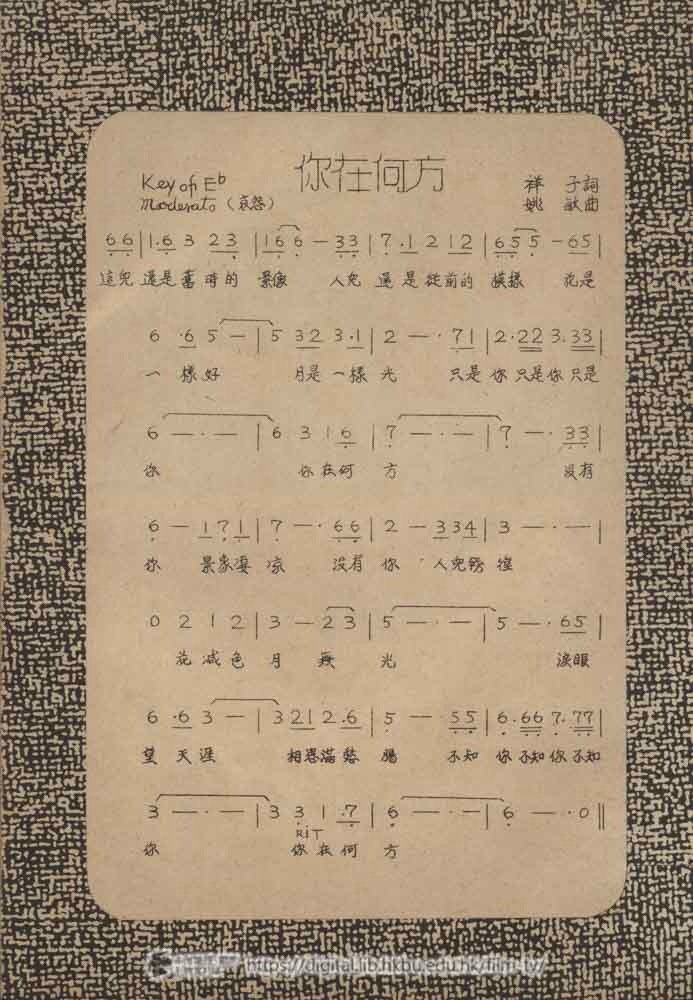 你在何方
Key of E♭
Moderato (哀怨)
祥 子詞
姚 敏曲
6 6 | 1.6 3 2 3 | 1 6 6 — 3 3 | 7 . 1 2 1 2 | 6 5 5 — 6 5 |
這兒 還是舊時的 景像 人兒 還是從前的 模樣 花是
6 .6 5 — | 5 3 2 3.1 | 2 — . 7 1 | 2.2 2 3.3 3 |
一樣好 月是一樣光 只是你只是你只是
6 — . — | 6 3 1 6 | 7 — . — | 7 — . 3 3 |
你 你在何 方 沒有
6 — 1 7 1 | 7 — . 6 6 | 2 — 3 3 4 | 3 — . — |
你 景象淒涼 沒有你 人兒徬徨
0 2 1 2 | 3 — 2 3 | 5 — . — | 5 — . 6 5 |
花減色月無 光 淚眼
6 .6 3 — | 3 2 1 2 .6 | 5 — 5 5 | 6.6 6 7.7 7 |
望天涯 相思滿愁腸 不知你不知你不知
3 — . — | 3 3 1 .7 | 6 — . — | 6 — . 0 ‖
RIT
你 你在何 方
https://digital.lib.hkbu.edu.hk/film-tv/